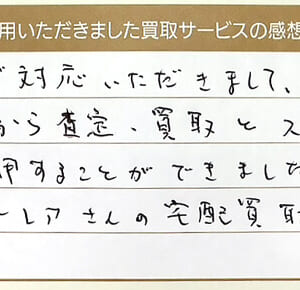 用いただきました買取サービスの感想
対応いただきまして、
から査定、買取とス
押することができました
ーレアさんの宅配買取